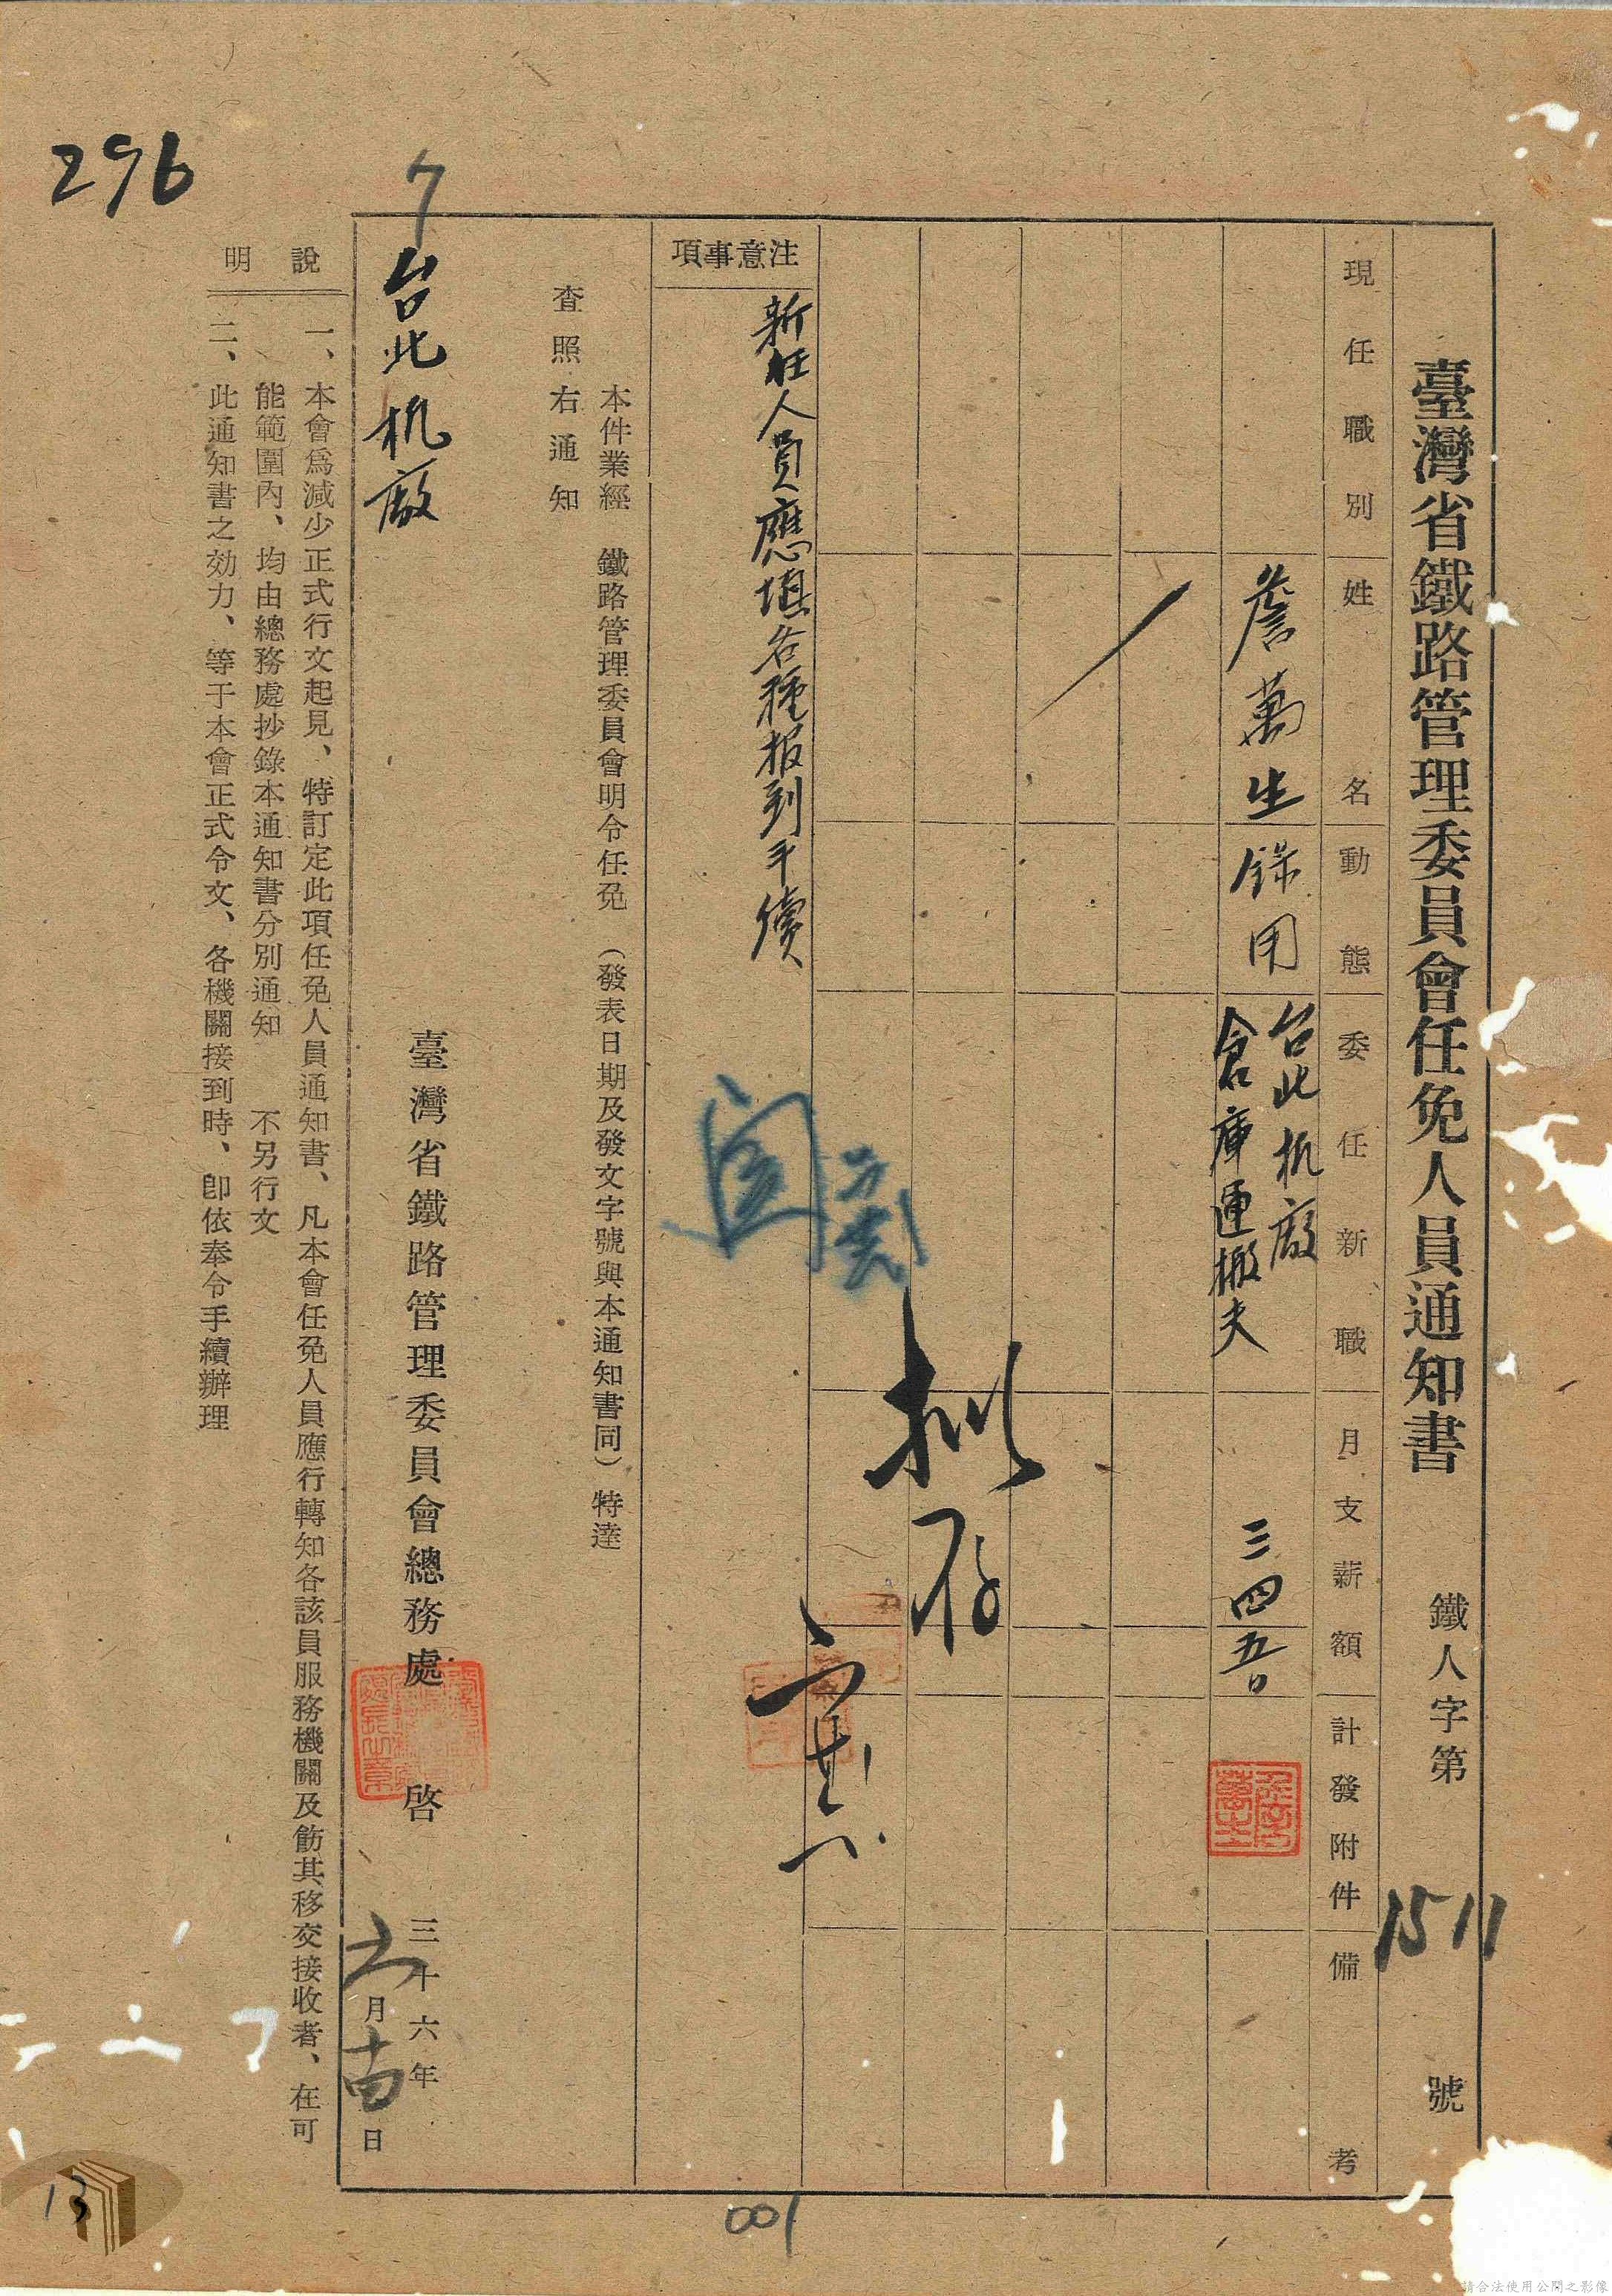 臺灣省鐵路管理委員會任免人員通知書
鐵人字第1511號
現任職別
姓名
動態
委任新職
月支薪額
計發附件
備考
詹萬生
錄用
台北机廠
倉庫運搬夫
三四五
注意事項
新任人員應填各種报到手續
拟存
本件業經　鐵路管理委員會明令任免（發表日期及發文字號與本通知書同）特達
查照右通知
7
台北机廠
臺灣省鐵路管理委員會總務處　啓
三十六年
月
日
說明
一、本會爲減少正式行文起見、特訂定此項任免人員通知書、凡本會任免人員應行轉知各該員服務機關及飭其移交接收者、在可
能範圍內、均由總務處抄錄本通知書分別通知　不另行文
二、此通知書之効力、等于本會正式令文、各機關接到時、卽依奉令手續辦理
296
13
001
請合法使用公開之影像